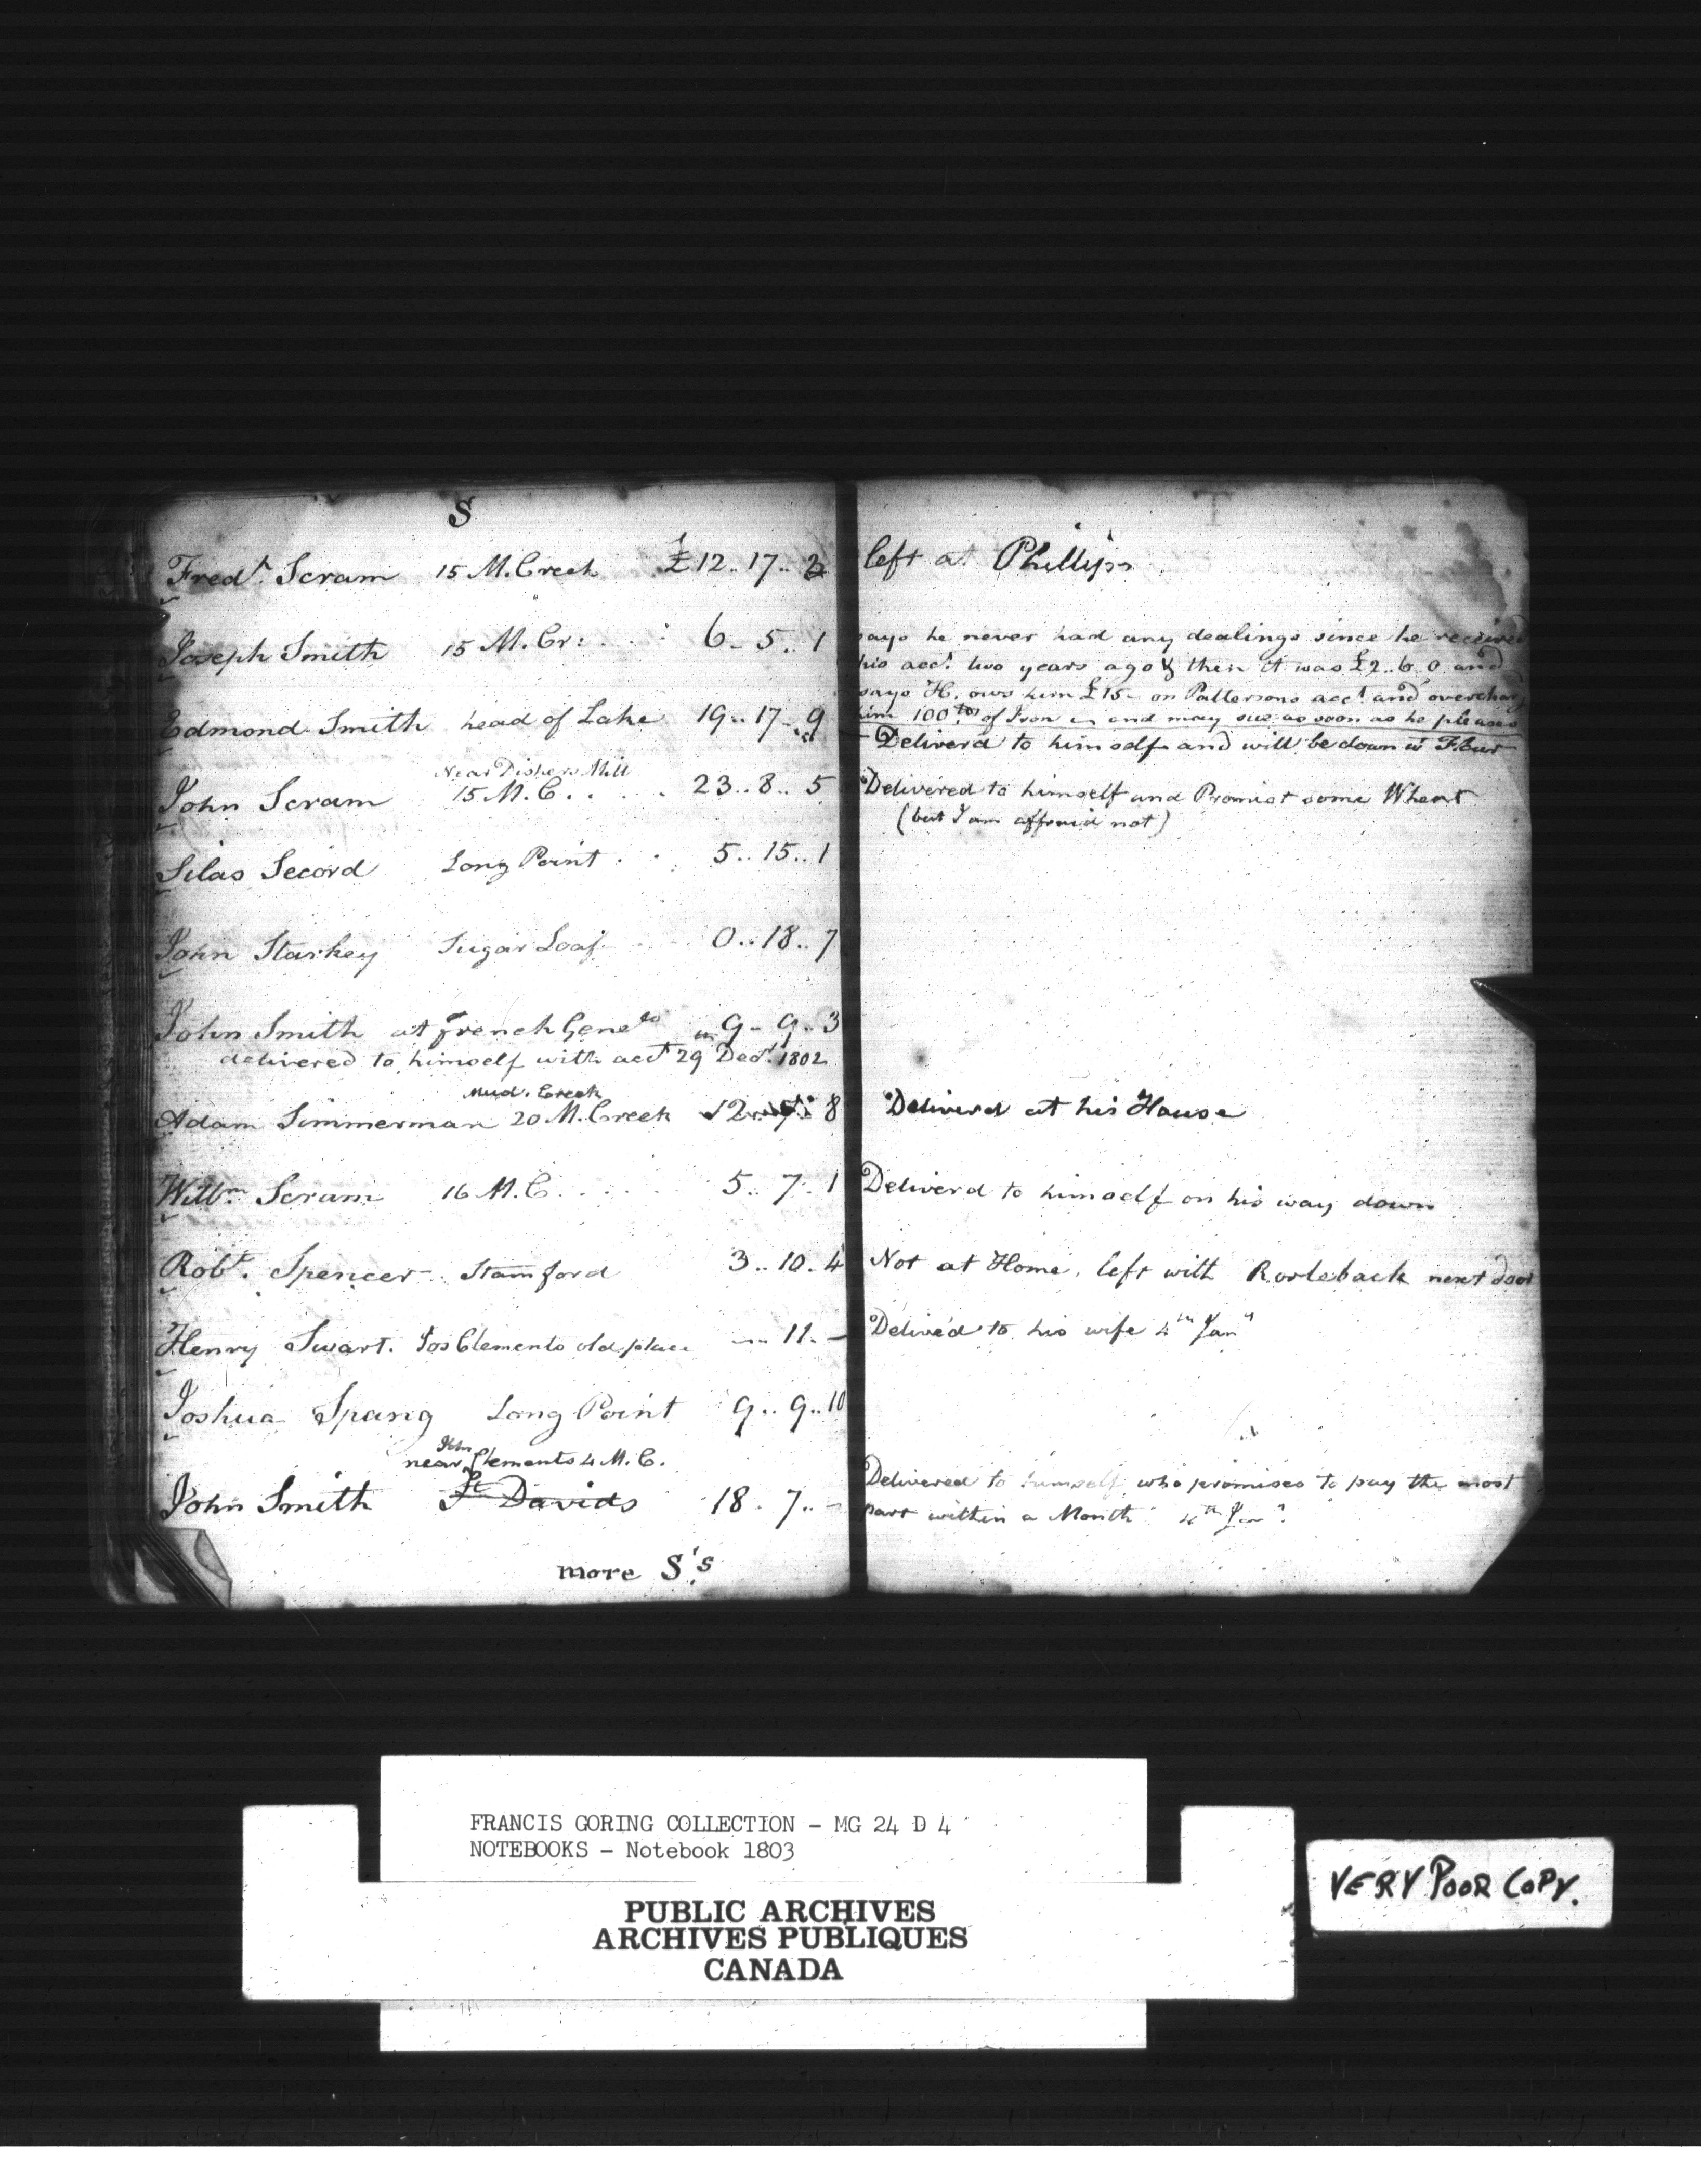 S
Fredk. Scram 15 M. Creek £12..17..2
Joseph Smith 15 M. Cr: 6..5..1
Edmond Smith head of Lake 19..17..9
Near Dishers Mill
John Scram 15 M.C. 23..8..5
Silas Secord Long Point 5..15..1
John Starkey Sugar Loaf 0..18..7
John Smith at french Genels 9..9..3
delivered to himself with acct 29 Decr. 1802
Mud. Creek
Adam Simmerman 20 M. Creek 8
Willm. Scram 16 M.C. 5..7..1
Robt. Spencer Stamford 3..10..4
Henry Swart. Jos Clements old place 11. –
Joshua Spang Long Point 9..9..10
John
near Clements 4 M.C.
John Smith St Davids 18..7..–
more S's
T
left at Phillips
says he never had any dealings since he received
his acct. two years ago & then it was £2..6..0 and
says H. ows him £15– on Pattersons acct and overcharg
him 100 lbs of Iron and may sue as soon as he pleases
Deliverd to himself and will be down w Flour
Delivered to himself and Promist some Wheat
(but I am affraid not)
Deliverd at his House
Deliverd to himself on his way down
Not at Home. left with next door
Delive'd to his wife 4th Jany
Delivered to himself who promises to pay the most
part within a Month 4th Jany.
FRANCIS GORING COLLECTION - MG 24 D 4
NOTEBOOKS - Notebook 1803
PUBLIC ARCHIVES
ARCHIVES PUBLIQUES
CANADA
VERY POOR COPY.